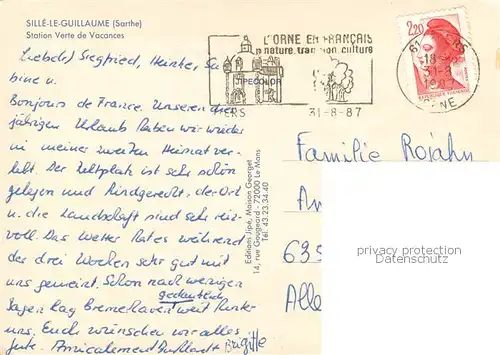 SILLÉ-LE-GUILLAUME (Sarthe)
Station Verte de Vacances
Liebe(r) Siegfried, Heinke, Sa-
bine u.
Bonjours de France. Unseren dies
jährigen Urlaub haben wir wieder
in meiner zweiten Heimat ver-
lebt. Der Zeltplatz ist sehr schön
gelegen und kindgerecht, der Ort
u. die Landschaft sind sehr reiz-
voll. Das Wetter hat es während
der drei Wochen sehr gut mit
uns gemeint. Schon nach wenigen
gedanklich
Tagen lag Bremerhaven weit hinter
uns. Euch wünschen wir alles
Gute. Amicalement Brigitte
Editions Jipé, Maison Georget
14, rue Gougeard - 72000 Le Mans
Tél. 43.23.34.40
L'ORNE EN FRANÇAIS
nature, tradition, culture
JIPECOLOR
ERS 31-8-87
2,20
61
ERS
18
31-8
1987
ORNE
Familie Rojahn
Am
635
Alle
privacy protection
Datenschutz